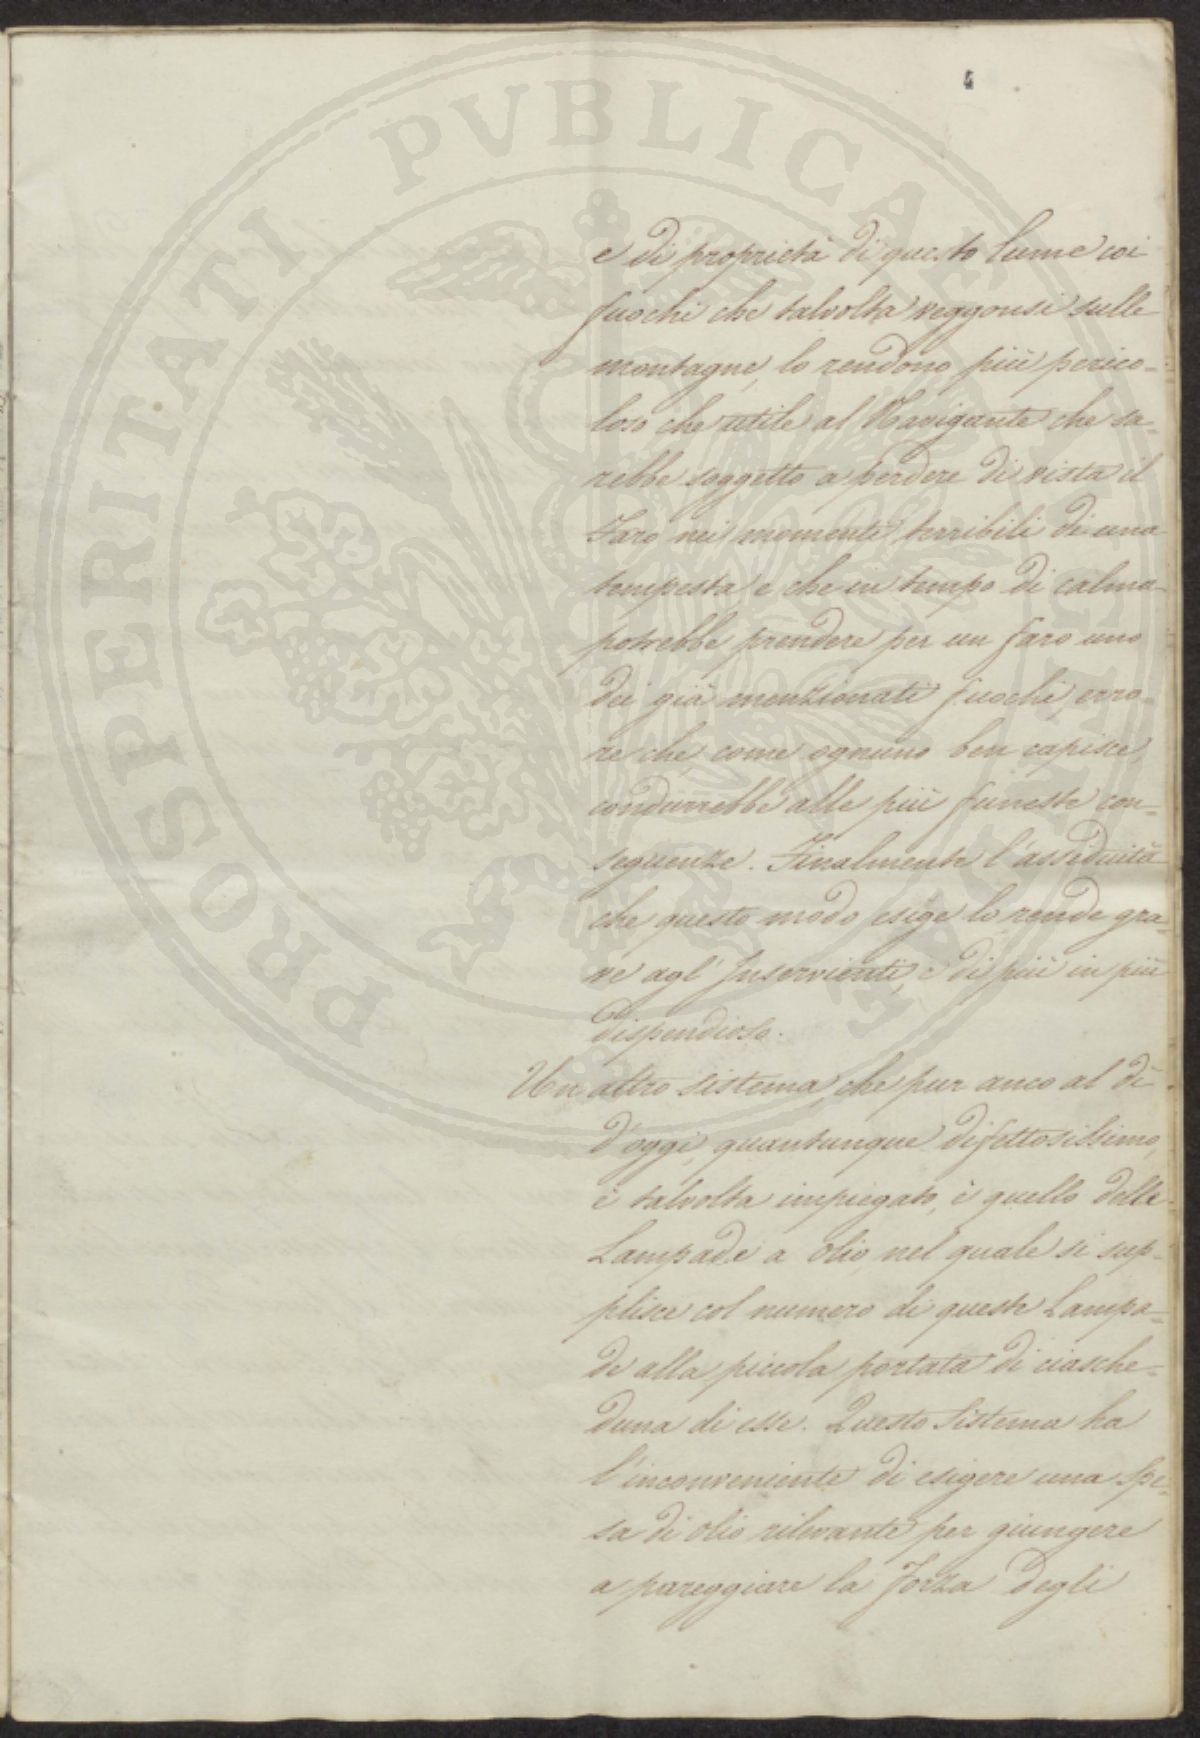 4
e di proprietà di questo lume coi
fuochi che talvolta veggonsi sulle
montagne, lo rendono più perico-
loso che utile al Navigante che sa-
rebbe soggetto a perdere di vista il
Faro nei momenti terribili di una
tempesta, e che in tempo di calma
potrebbe prendere per un faro uno
dei già menzionati fuochi, erro-
re che, come ognuno ben capisce,
condurrebbe alle più funeste con-
seguenze. Finalmente l'assiduità
che questo modo esige lo rende gra-
ve agl'Inservienti, e di più in più
dispendioso.
Un altro sistema, che pur anco al dì
d'oggi, quantunque difettosissimo,
è talvolta impiegato, è quello delle
Lampade a olio, nel quale si sup-
plisce col numero di queste Lampa-
de alla piccola portata di ciasche-
duna di esse. Questo Sistema ha
l'inconveniente di esigere una spe-
sa di olio rilevante per giungere
a pareggiare la forza degli
PROSPERITATI PVBLICAE AVGENDAE